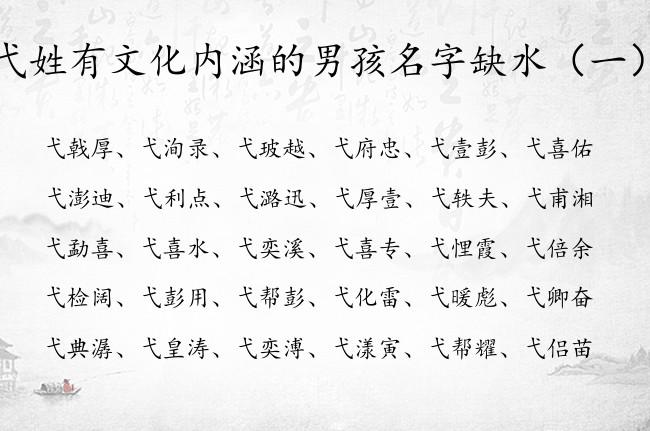 弋姓有文化内涵的男孩名字缺水（一）
弋戟厚、弋洵录、弋玻越、弋府忠、弋壹彭、弋喜佑
弋澎迪、弋利点、弋潞迅、弋厚壹、弋轶夫、弋甫湘
弋勐喜、弋喜水、弋奕溪、弋喜专、弋悝霞、弋倍余
弋检阔、弋彭用、弋帮彭、弋化雷、弋暖彪、弋卿奋
弋典潺、弋皇涛、弋奕溥、弋漾寅、弋帮耀、弋侣苗